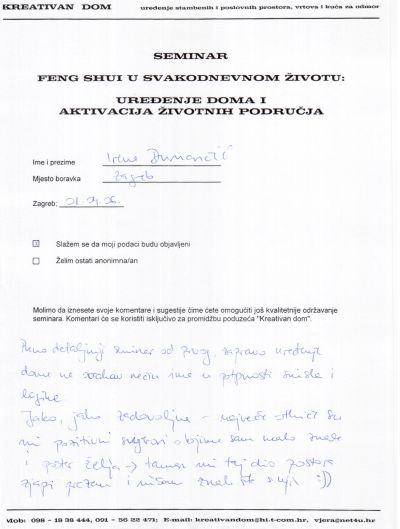 KREATIVAN DOM uređenje stambenih i poslovnih prostora, vrtova i kuća za odmor
SEMINAR
FENG SHUI U SVAKODNEVNOM ŽIVOTU:
UREĐENJE DOMA I
AKTIVACIJA ŽIVOTNIH PODRUČJA
Ime i prezime Irena
Mjesto boravka Zagreb
Zagreb;
Slažem se da moji podaci budu objavljeni
Želim ostati anonimna/an
Molimo da iznesete svoje komentare i sugestije čime ćete omogućiti još kvalitetnije održavanje
seminara. Komentari će se koristiti isključivo za promidžbu poduzeća "Kreativan dom".
detaljniji seminar od prvog, zapravo uređenje
doma ima u potpunosti smisla i
logike
Jako, jako zadovoljna – najveće su
mi pozitivni o kojima sam malo znala
i želja → taman mi taj dio prostora
zjapi prazan i nisam znala što s njim :))
Mob: 098 - 19 38 444, 091 - 56 22 471; E-mail: kreativandom@hi.t-com.hr, vjera@net4u.hr